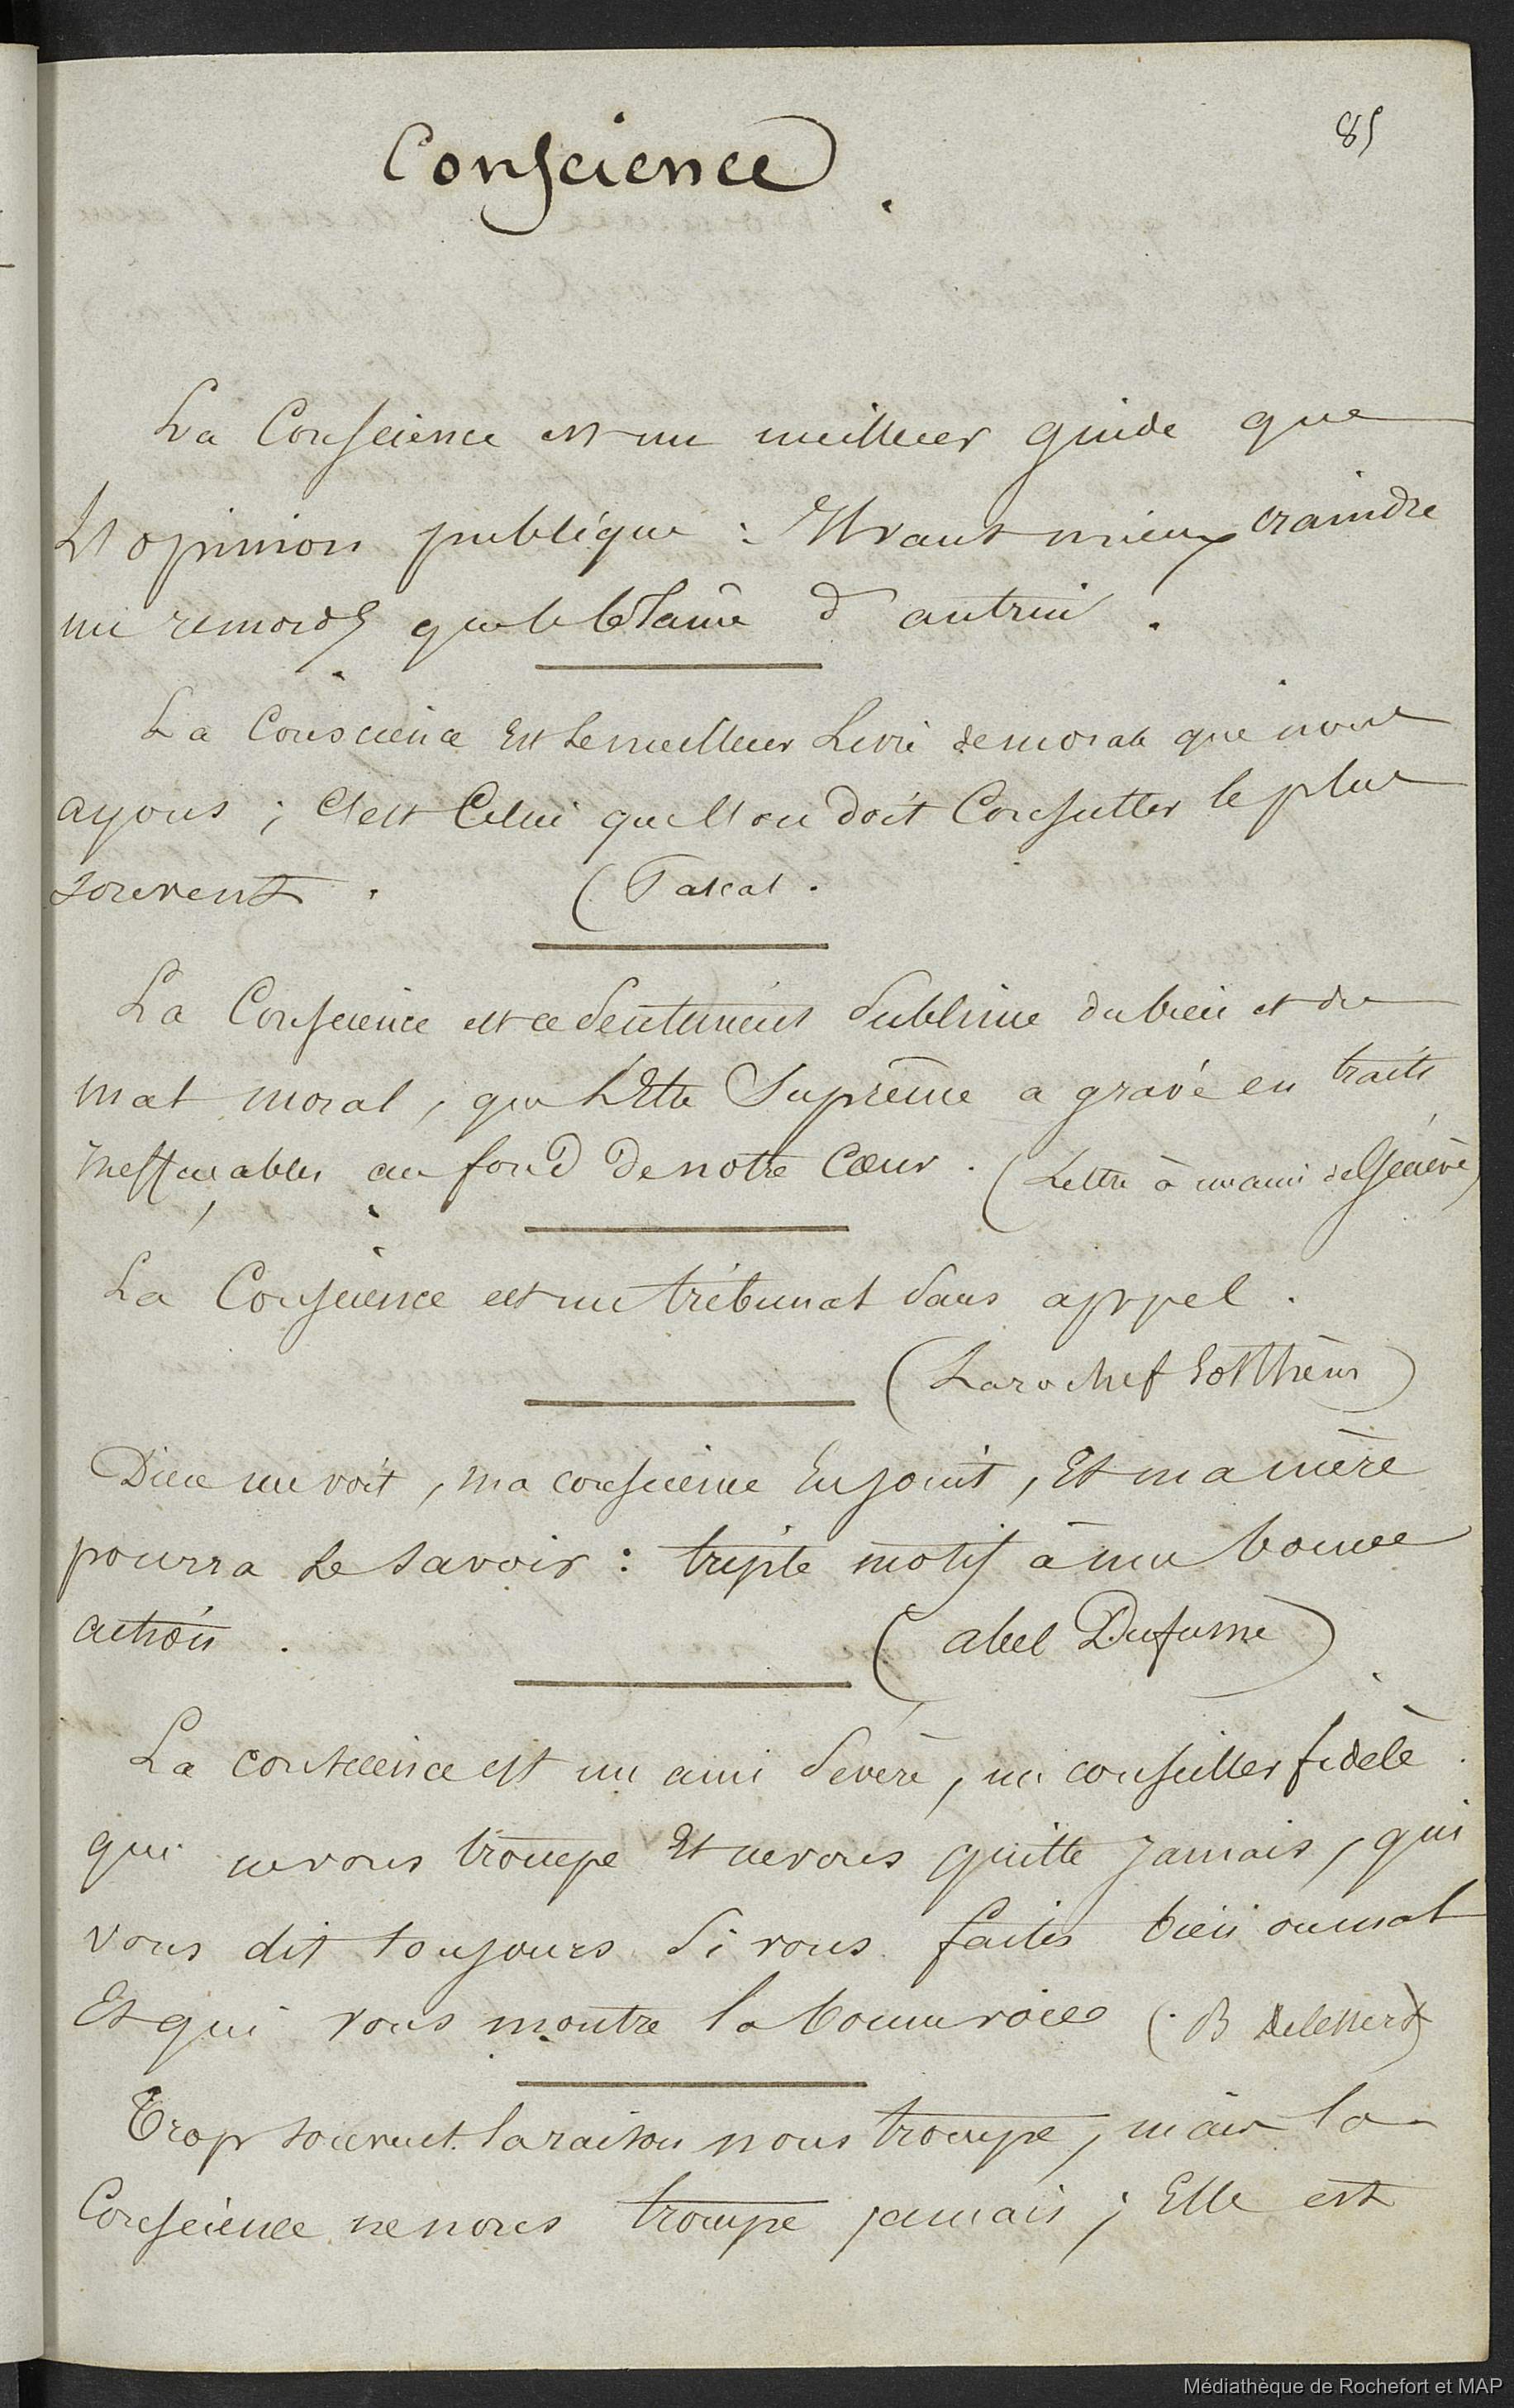 85
Conscience.
La Conscience est un meilleur guide que
L'opinion publique : Il vaut mieux craindre
un remords que le blâme d'autrui.
La Conscience Est le meilleur Livre de morale que nous
ayons ; C'est Celui que l'on doit Consulter le plus
souvent. (Pascal.
La Conscience est ce Sentiment Sublime du bien et du
mal moral, que L'Être Suprême a gravé en traits
ineffaçables au fond de notre Cœur. (Lettre à un ami de Genève)
La Conscience est un tribunal sans appel.
(Larochef
Dieu me voit, ma conscience Enjoint, Et ma mère
pourra le savoir : triple motif à une bonne
action. (abel Dufresne)
La conscience est un ami Sévère, un conseiller fidèle
qui ne vous trompe Et ne vous quitte Jamais, qui
vous dit toujours Si vous faites bien ou mal
Et qui vous montre la bonne voie (B Delessert)
Trop souvent la raison nous trompe, mais la
Conscience ne nous trompe jamais ; Elle est
Médiathèque de Rochefort et MAP